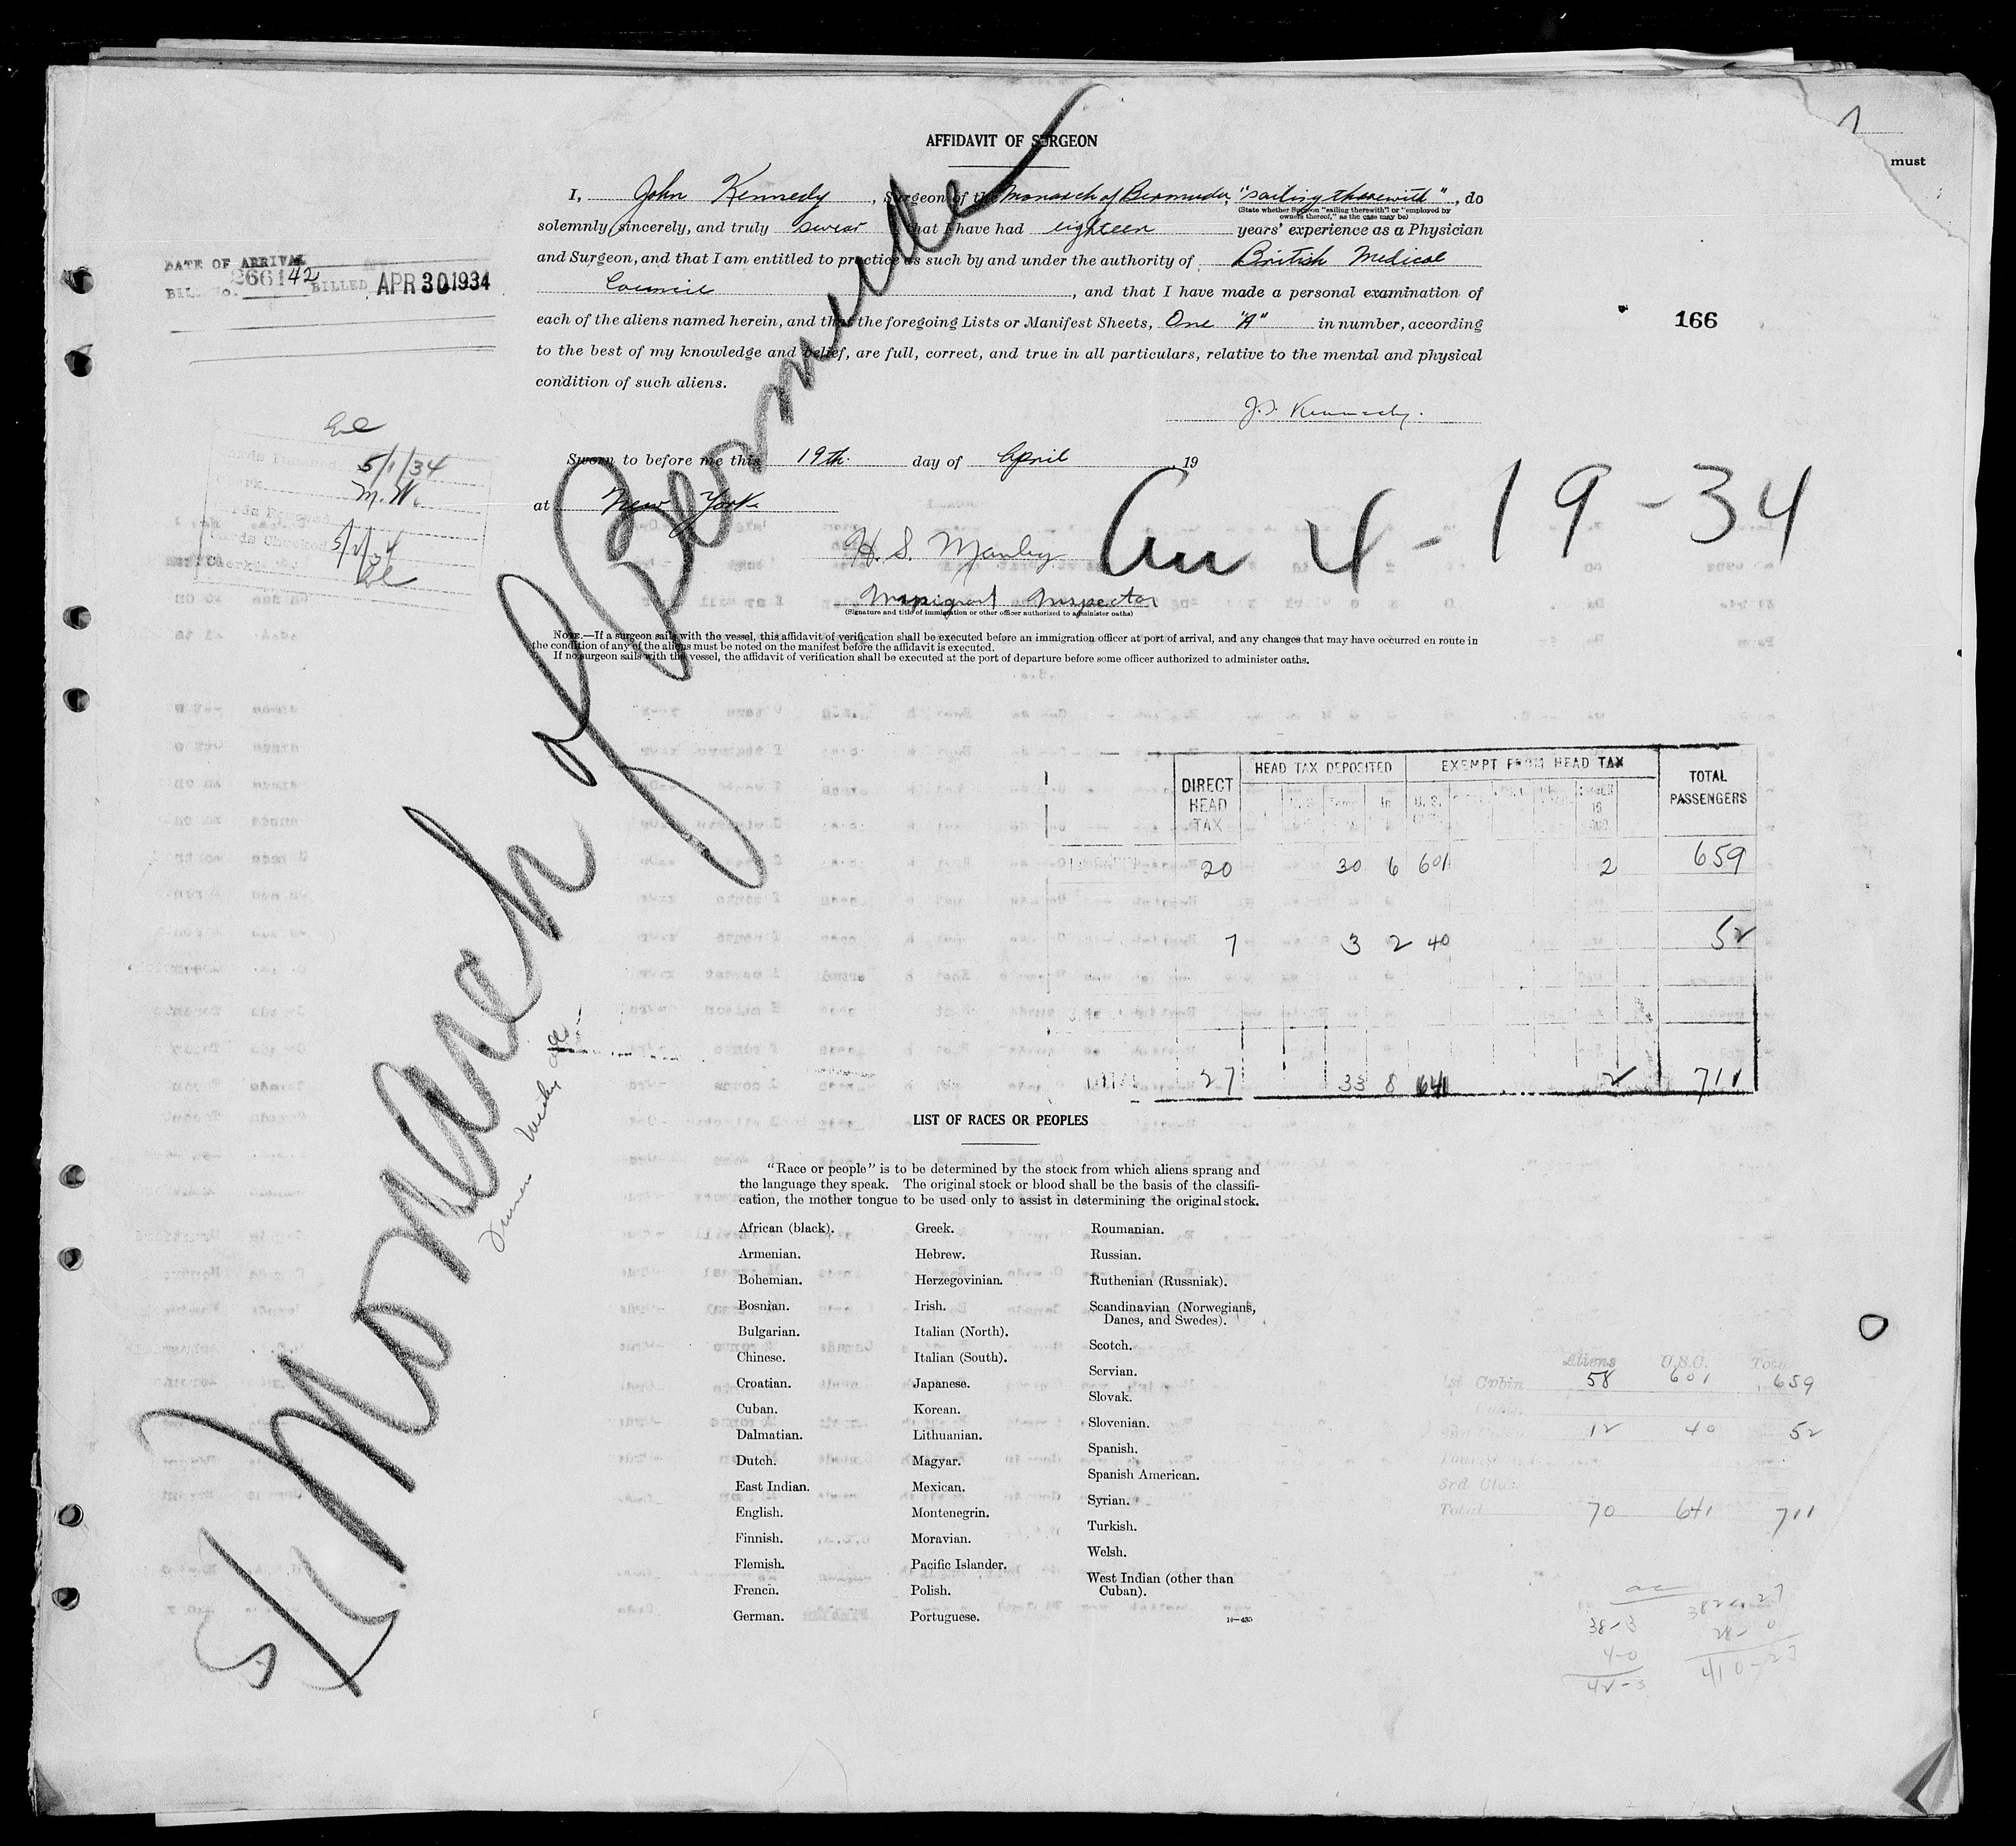 must
AFFIDAVIT OF SURGEON
I, John Kennedy, Surgeon of the Monarch of Bermuda, "sailing therewith", do
(State whether Surgeon "sailing therewith" or "employed by
owners thereof," as the case may be)
solemnly, sincerely, and truly swear that I have had eighteen years' experience as a Physician
and Surgeon, and that I am entitled to practice as such by and under the authority of British Medical
Council, and that I have made a personal examination of
each of the aliens named herein, and that the foregoing Lists or Manifest Sheets, One "A" in number, according
to the best of my knowledge and belief, are full, correct, and true in all particulars, relative to the mental and physical
condition of such aliens.
J. Kennedy.
DATE OF ARRIVAL
BILL No. 266142 BILLED APR 30 1934
166
5/1/34
M.W.
Sworn to before me this 19th. day of April, 19
at New York
H. S. Manley
Immigrant Inspector
(Signature and title of immigration or other officer authorized to administer oaths)
4-19-34
NOTE.—If a surgeon sails with the vessel, this affidavit of verification shall be executed before an immigration officer at port of arrival, and any changes that may have occurred en route in
the condition of any of the aliens must be noted on the manifest before the affidavit is executed.
If no surgeon sails with the vessel, the affidavit of verification shall be executed at the port of departure before some officer authorized to administer oaths.
S/S Monarch of Bermuda
DIRECT HEAD TAX HEAD TAX DEPOSITED EXEMPT FROM HEAD TAX TOTAL PASSENGERS
20 30 6 601 2 659
7 3 2 40 52
TOTAL 27 33 8 641 2 711
LIST OF RACES OR PEOPLES
"Race or people" is to be determined by the stock from which aliens sprang and
the language they speak. The original stock or blood shall be the basis of the classifi-
cation, the mother tongue to be used only to assist in determining the original stock.
African (black).
Armenian.
Bohemian.
Bosnian.
Bulgarian.
Chinese.
Croatian.
Cuban.
Dalmatian.
Dutch.
East Indian.
English.
Finnish.
Flemish.
French.
German.
Greek.
Hebrew.
Herzegovinian.
Irish.
Italian (North).
Italian (South).
Japanese.
Korean.
Lithuanian.
Magyar.
Mexican.
Montenegrin.
Moravian.
Pacific Islander.
Polish.
Portuguese.
Roumanian.
Russian.
Ruthenian (Russniak).
Scandinavian (Norwegians,
Danes, and Swedes).
Scotch.
Servian.
Slovak.
Slovenian.
Spanish.
Spanish American.
Syrian.
Turkish.
Welsh.
West Indian (other than
Cuban).
Aliens U.S.C. Total
1st Cabin 58 601 659
12 40 52
3rd Class
Total 70 641 711
38-3
4-0
42-3
28-0